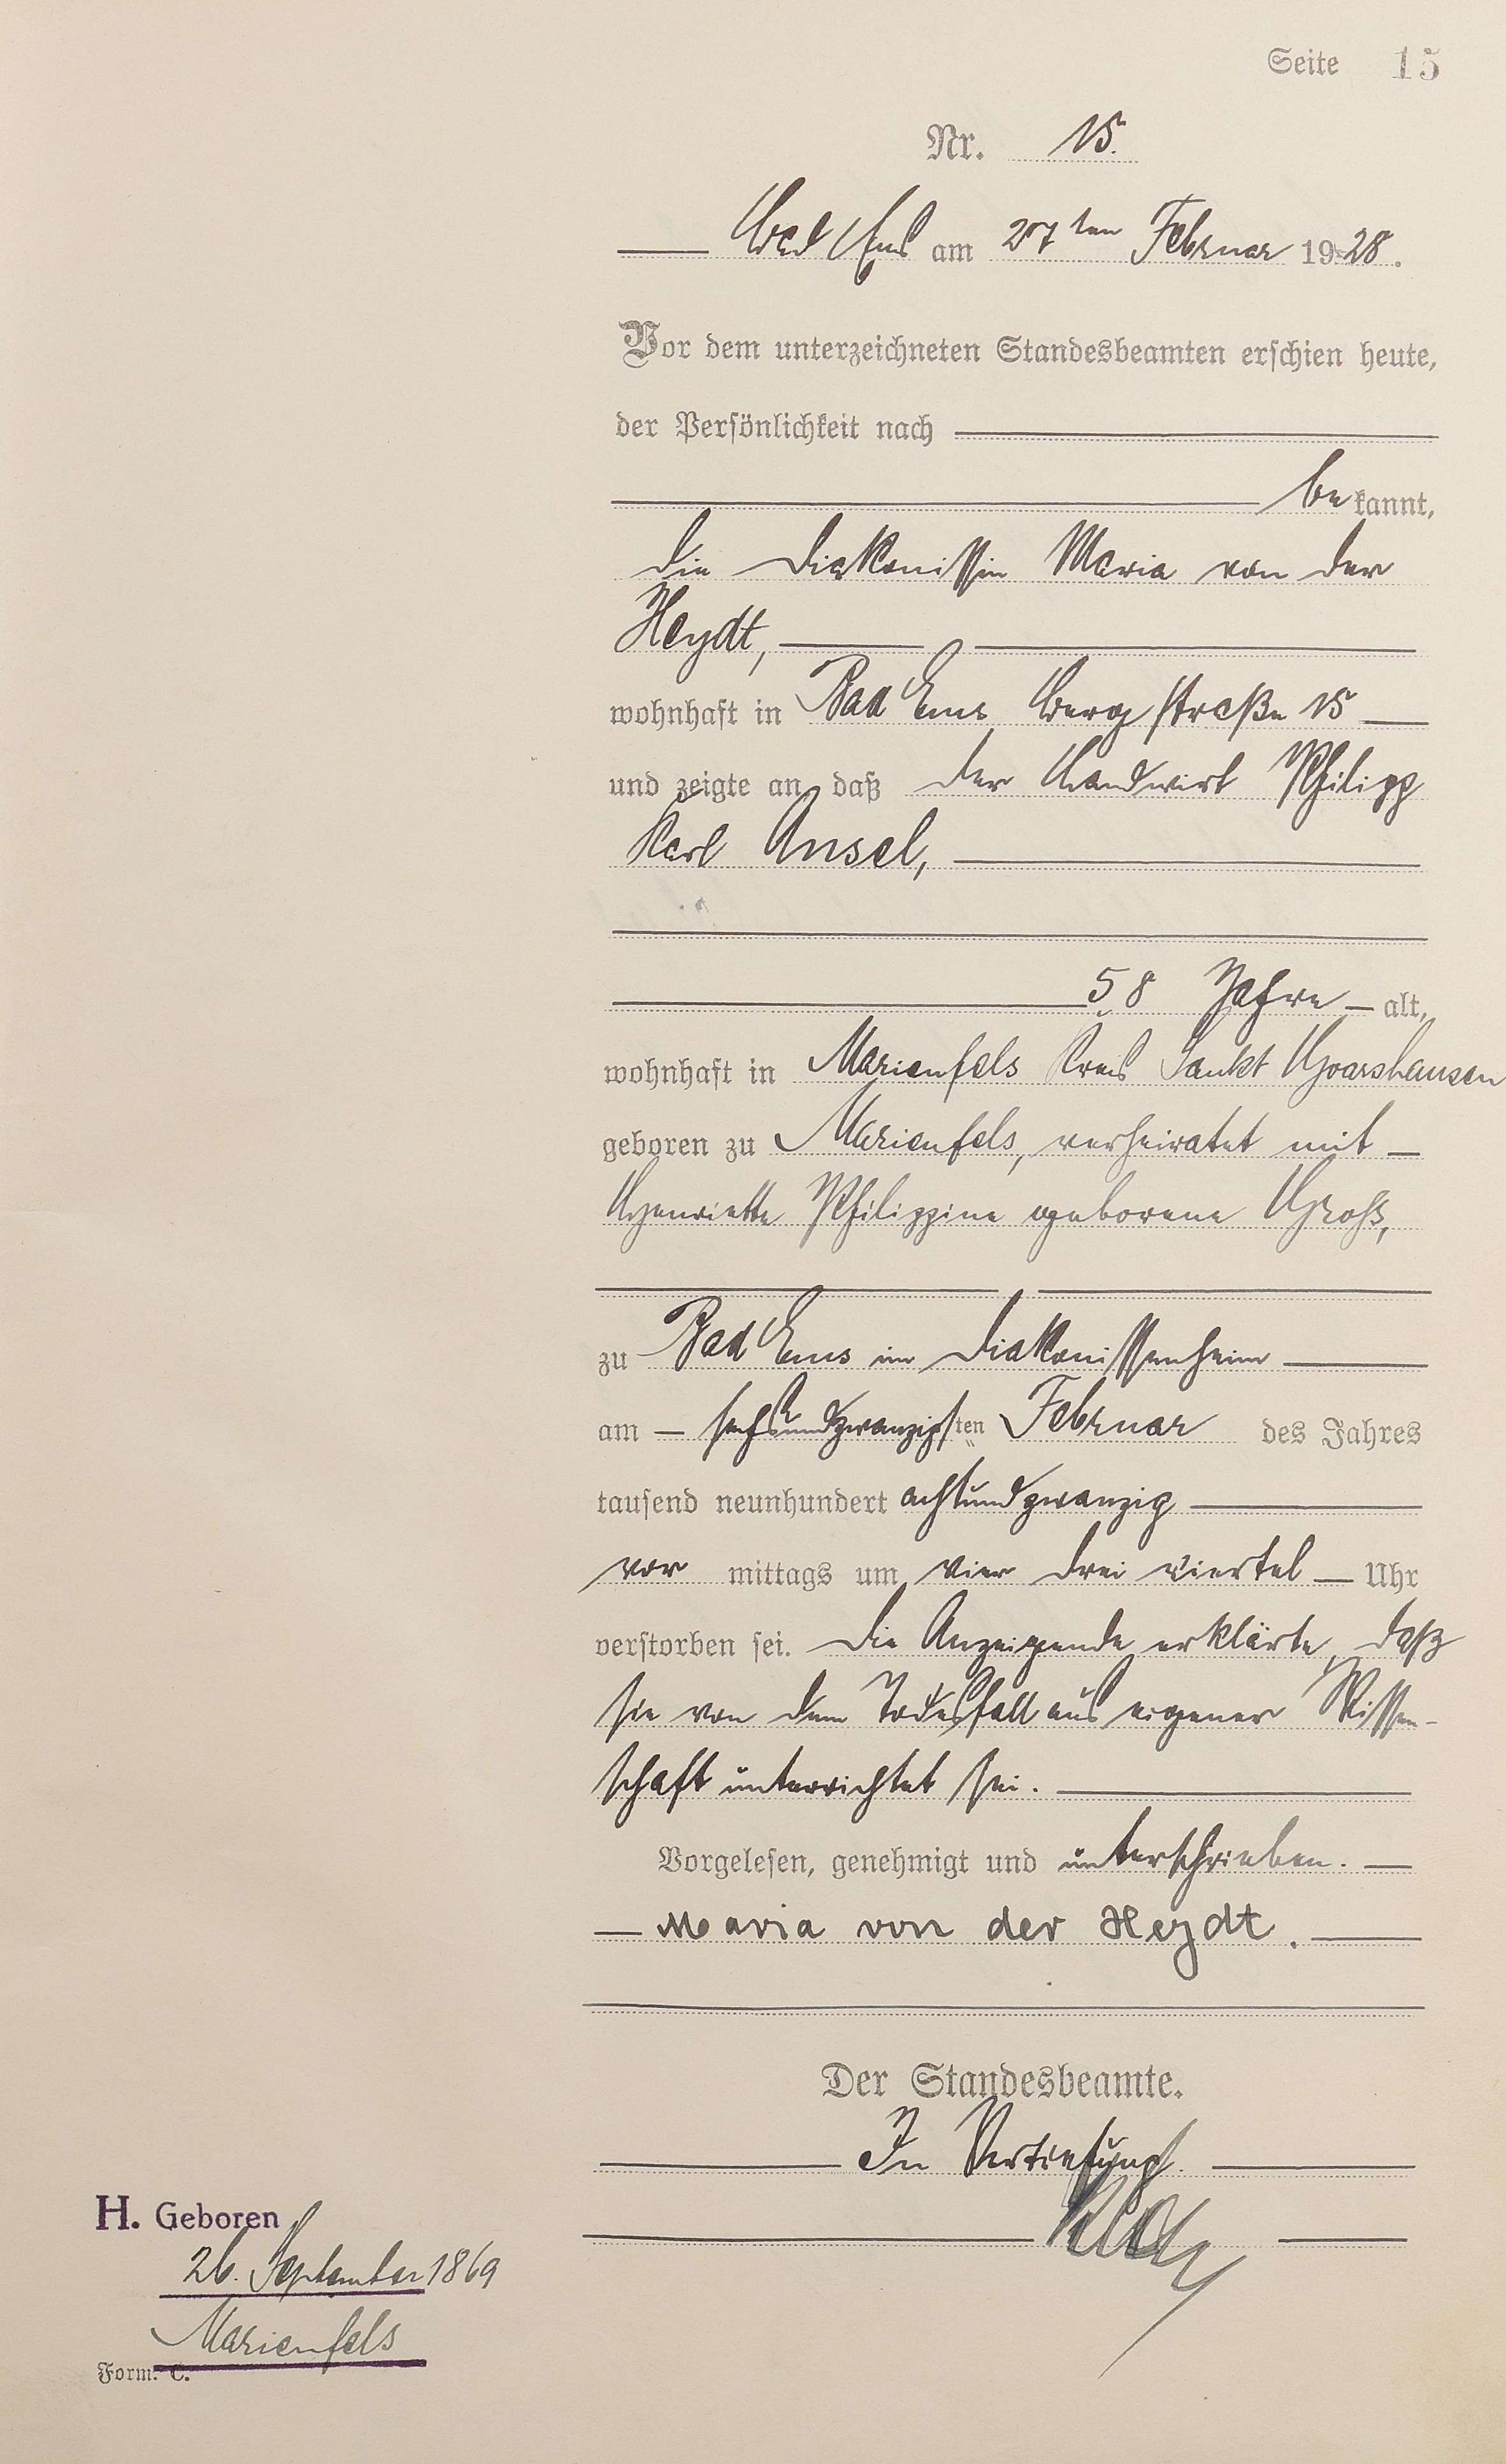 Seite 15
Nr. 15.
Bad Ems am 27ten Februar 1928.
Vor dem unterzeichneten Standesbeamten erschien heute,
der Persönlichkeit nach
bekannt,
die Diakonissin Maria von der
Heydt,
wohnhaft in Bad Ems, Bergstraße 15
und zeigte an, daß der Landwirt Philipp
Karl Ansel,
58 Jahre alt,
wohnhaft in Marienfels Kreis Sankt Goarshausen
geboren zu Marienfels, verheiratet mit
Henriette Philippine geborene Groß,
zu Bad Ems im Diakonissenheim
am sechsundzwanzigsten Februar des Jahres
tausend neunhundert achtundzwanzig
vor mittags um vier drei viertel Uhr
verstorben sei. Die Anzeigende erklärte, daß
sie von dem Todesfall aus eigener Wissen-
schaft unterrichtet sei.
Vorgelesen, genehmigt und unterschrieben.
Maria von der Heydt.
Der Standesbeamte.
In Vertretung.
H. Geboren
26. September 1869
Marienfels
Form. C.